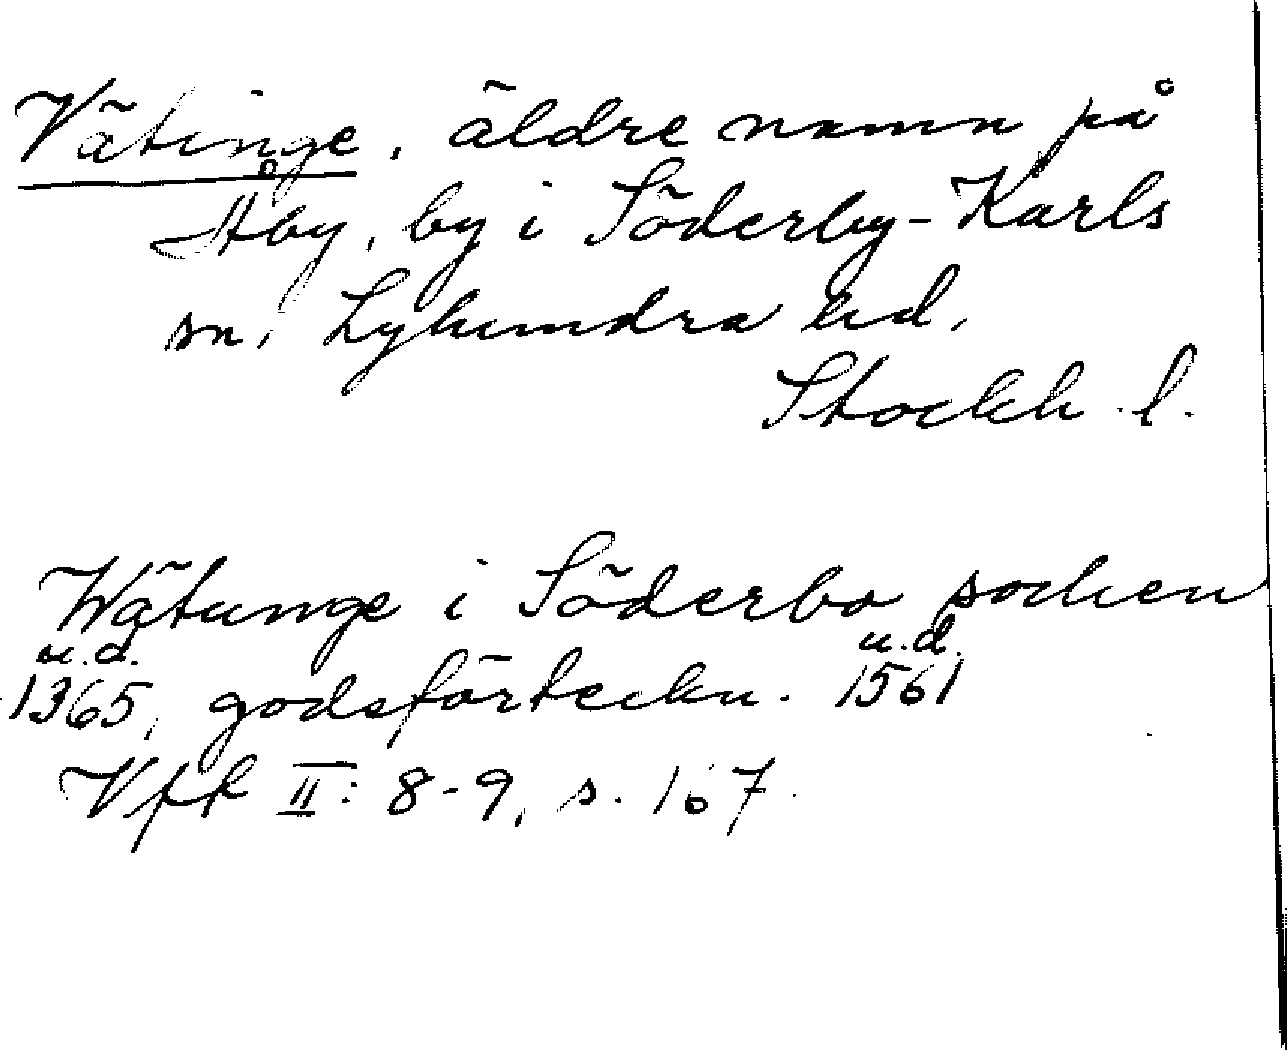 Vätinge, äldre namn på
Åby, by i Söderby-Karls
sn, Lyhundra hd,
Stockh. l.
Wätunge i Söderbo socken
u.d. u.d.
1365, godsförteckn. 1561
Vfk II: 8-9, s. 167.